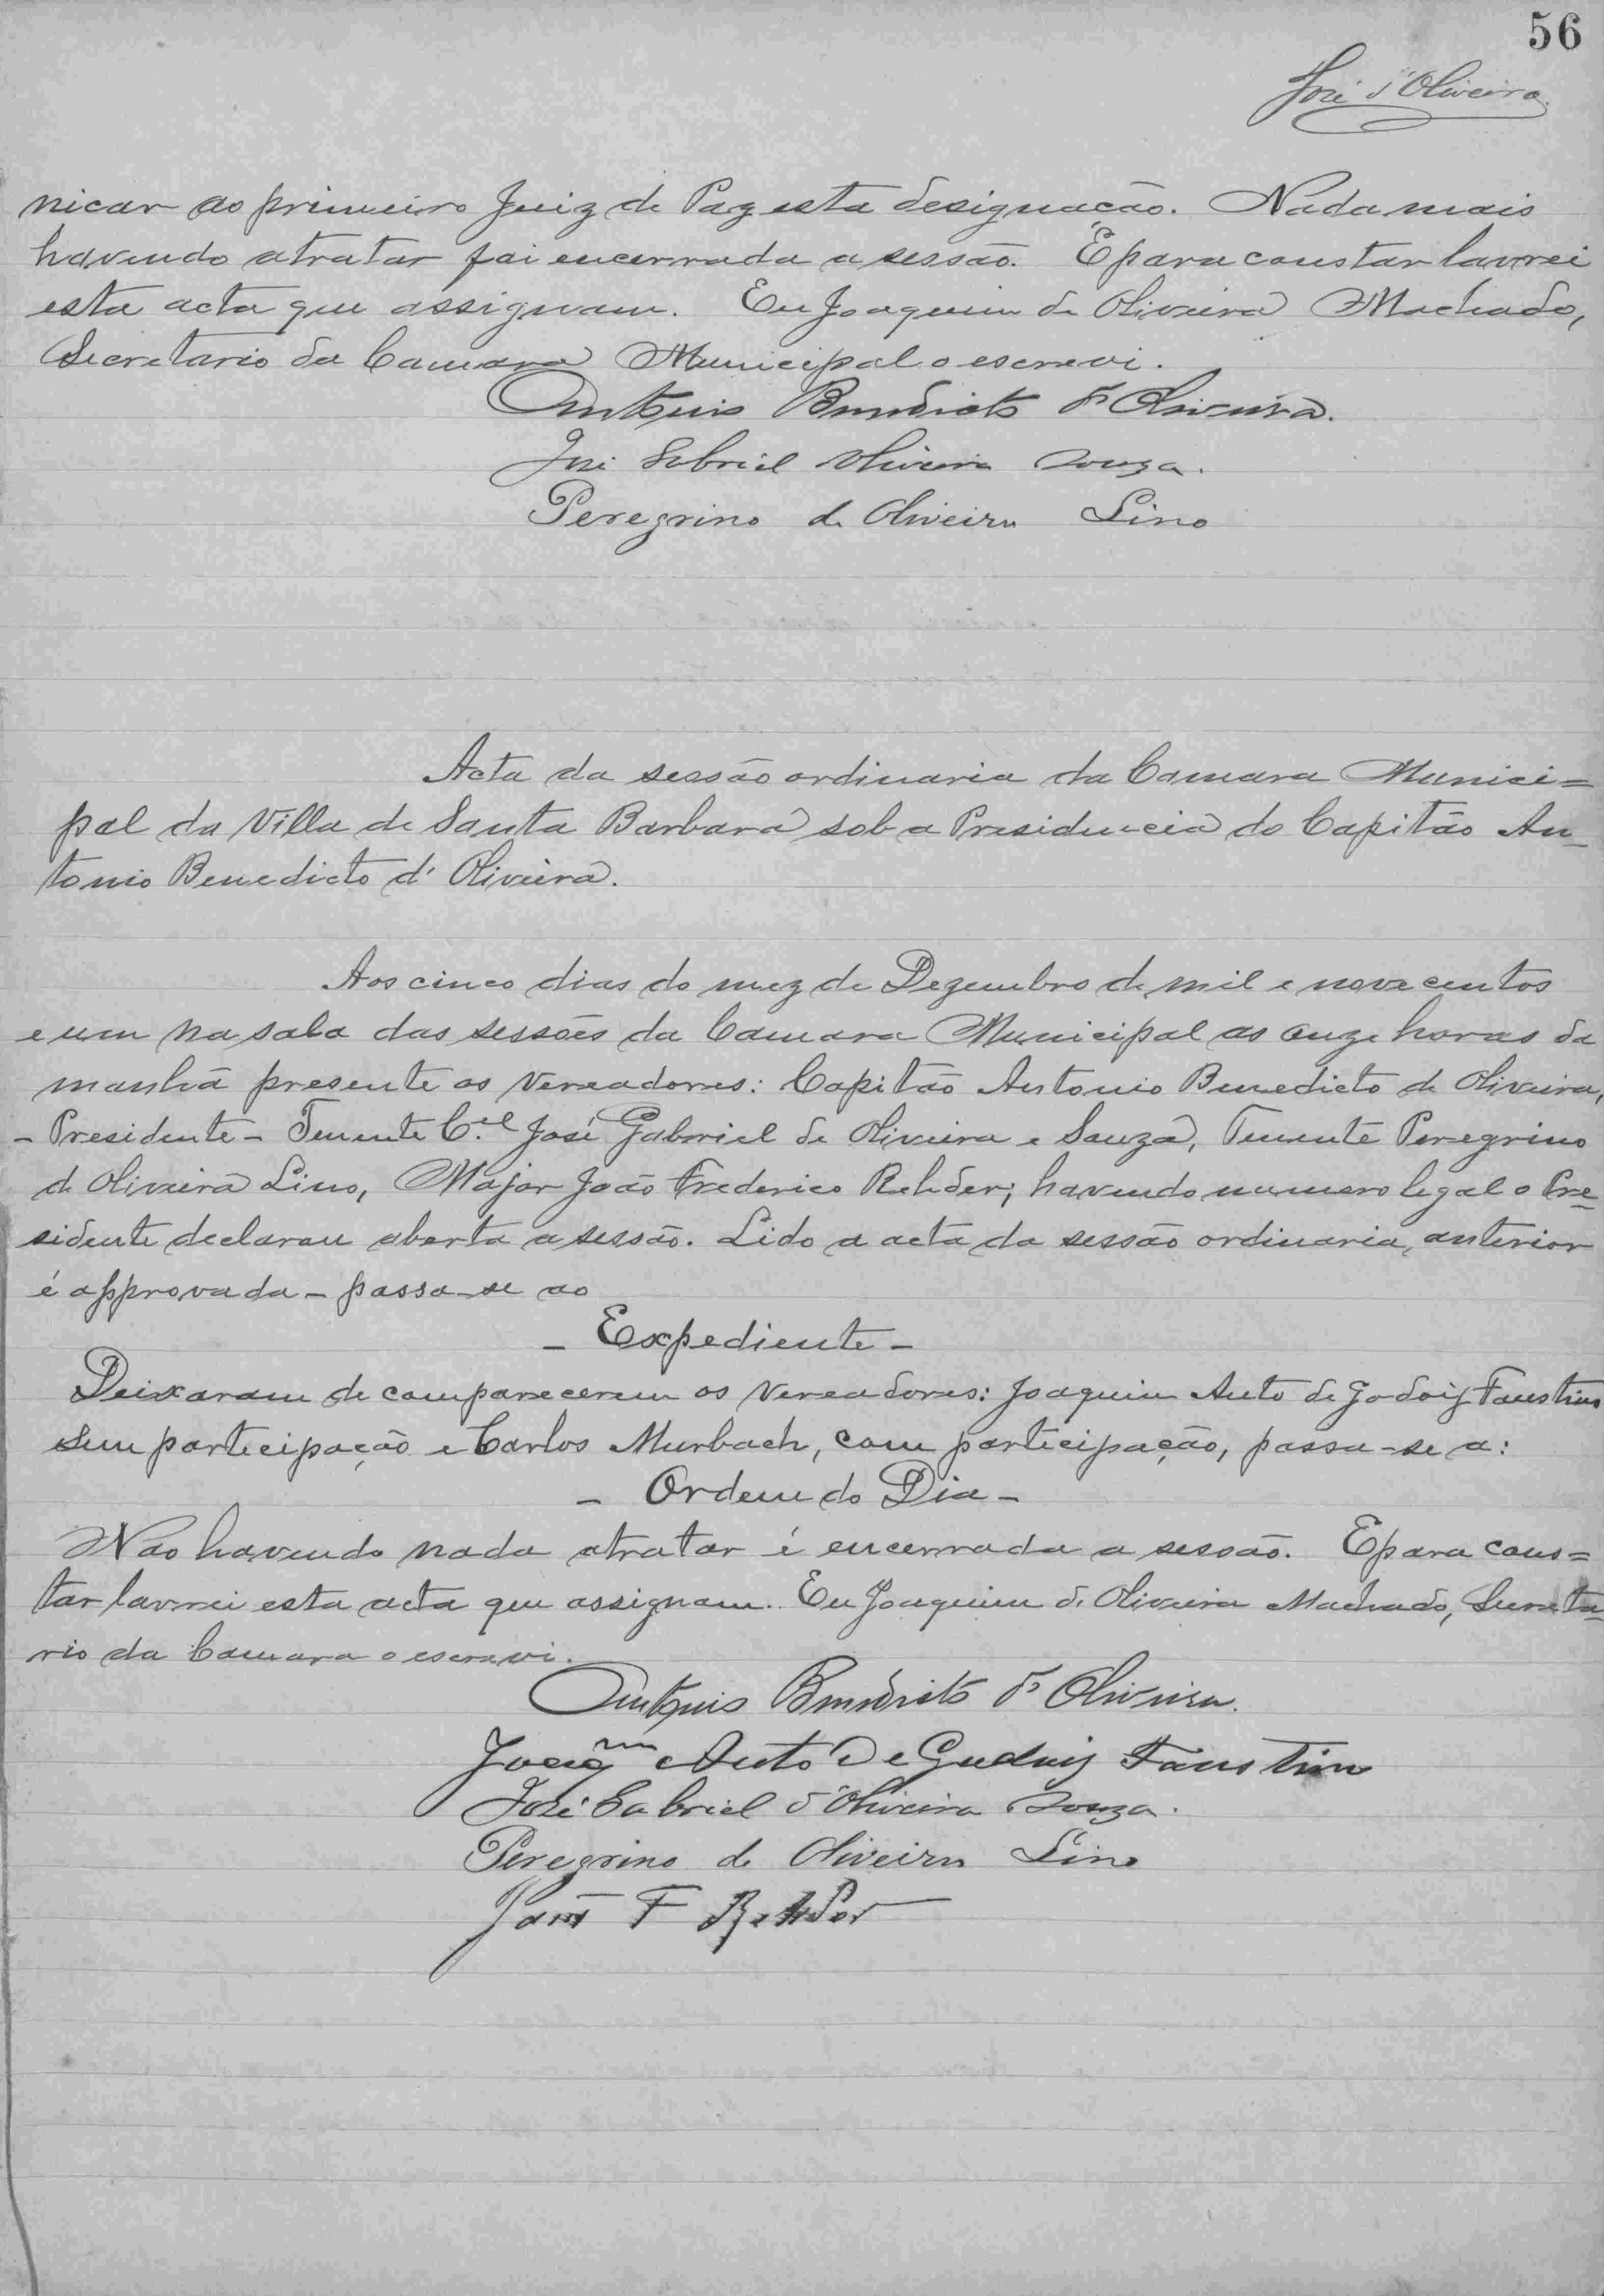 56
José d'Oliveira
nicar ao primeiro Juiz de Paz esta designacão. Nada mais
havendo atratar foi encerrada a sessão. E para constar lavrei
esta acta que assignam. Eu Joaquim de Oliveira Machado,
Secretario da Camara Municipal o escrevi.
Antonio Benedicto d'Oliveira.
José Gabriel Oliveira Souza.
Peregrino de Oliveira Lino
Acta da sessão ordinaria da Camara Munici=
pal da Villa de Santa Barbara sob a Presidencia do Capitão An_
tonio Benedicto d' Oliveira.
Aos cinco dias do mez de Dezembro de mil e nove centos
e um na sala das sessões da Camara Municipal as onze horas da
manhã presente os Vereadores: Capitão Antonio Benedicto de Oliveira,
- Presidente - Tenente C.el José Gabriel de Oliveira e Souza, Tenente Peregrino
de Oliveira Lino, Major João Frederico Rehder; havendo numero legal o Pre_
sidente declarou aberta a sessão. Lido a acta da sessão ordinaria, anterior
é approvada - passa-se ao
- Expediente -
Deixaram de comparecerem os Vereadores: Joaquim Anto de Godoiz Faustino
sem participação e Carlos Murbach, com participação, passa-se a:
- Ordem do Dia -
Não havendo nada atratar é encerrada a sessão. E para cons=
tar lavrei esta acta que assignam. Eu Joaquim d' Oliveira Machado, Secreta_
rio da Camara o escrevi.
Antonio Benedicto d'Oliveira.
Joaqm Anto De Godoiz Faustino
José Gabriel d'Oliveira Souza.
Peregrino de Oliveira Lino
João F Rehder